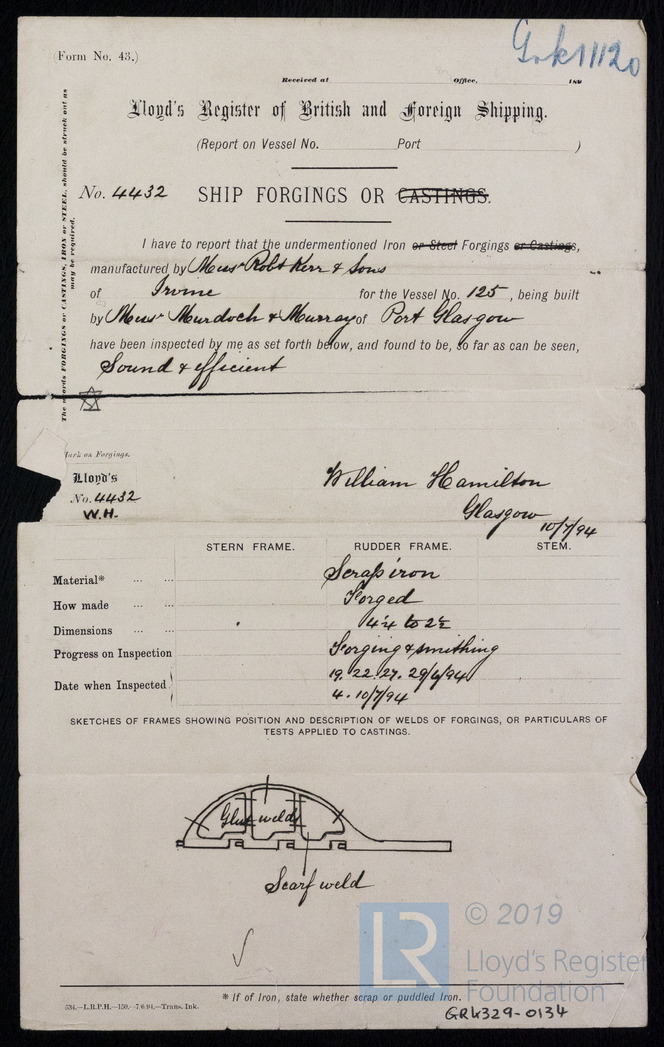 (Form No. 43.)
Grk 11120
Received at Office, 189
Lloyd's Register of British and Foreign Shipping.
(Report on Vessel No. Port )
No. 4432 SHIP FORGINGS OR CASTINGS.
The words FORGINGS or CASTINGS, IRON or STEEL, should be struck out as
may be required.
I have to report that the undermentioned Iron or Steel Forgings or Castings,
manufactured by Messrs Robt Kerr & Sons
of Irvine for the Vessel No. 125, being built
by Messrs Murdoch & Murray of Port Glasgow
have been inspected by me as set forth below, and found to be, so far as can be seen,
Sound & efficient
Mark on Forgings.
Lloyd's
No. 4432
W.H.
William Hamilton
Glasgow
10/7/94
STERN FRAME. RUDDER FRAME. STEM.
Material* ... ... Scrap iron
How made ... ... Forged
Dimensions ... ... 4¼ to 2½
Progress on Inspection Forging & smithing
Date when Inspected 19. 22. 27. 29/6/94
4. 10/7/94
SKETCHES OF FRAMES SHOWING POSITION AND DESCRIPTION OF WELDS OF FORGINGS, OR PARTICULARS OF
TESTS APPLIED TO CASTINGS.
Glut welds
Scarf weld
LR
© 2019
Lloyd's Register
Foundation
* If of Iron, state whether scrap or puddled Iron.
534.—L.R.P.H.—150.—7.6.94.—Trans. Ink.
GRK329-0134